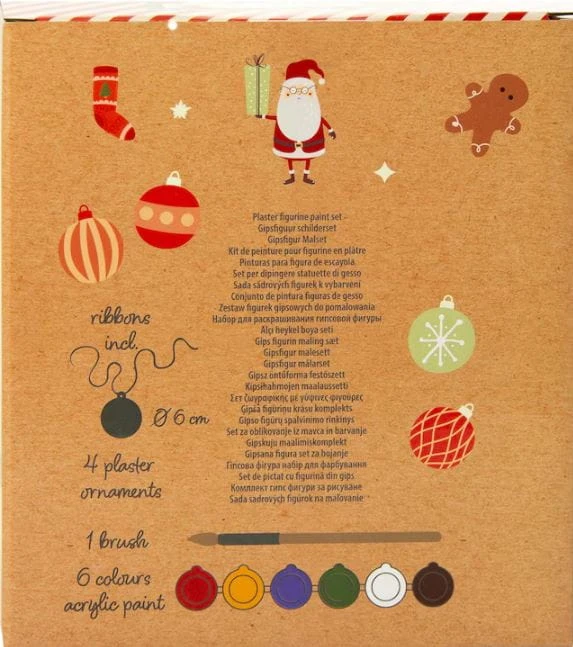 Plaster figurine paint set
Gipsfiguur schilderset
Gipsfigur Malset
Kit de peinture pour figurine en plâtre
Pinturas para figura de escayola
Set per dipingere statuette di gesso
Sada sádrových figurek k vybarvení
Conjunto de pintura figuras de gesso
Zestaw figurek gipsowych do pomalowania
Набор для раскрашивания гипсовой фигуры
Alçı heykel boya seti
Gips figurin maling sæt
Gipsfigur malesett
Gipsfigur målarset
Gipsz öntőforma festőszett
Kipsihahmojen maalaussetti
Σετ ζωγραφικής με γύψινες φιγούρες
Ģipša figūriņu krāsu komplekts
Gipso figūrų spalvinimo rinkinys
Set za oblikovanje iz mavca in barvanje
Gipskuju maalimiskomplekt
Gipsana figura set za bojanje
Гіпсова фігура набір для фарбування
Set de pictat cu figurină din gips
Комплект гипс фигури за рисуване
Sada sadrových figúrok na maľovanie
ribbons
incl.
Ø 6 cm
4 plaster
ornaments
1 brush
6 colours
acrylic paint